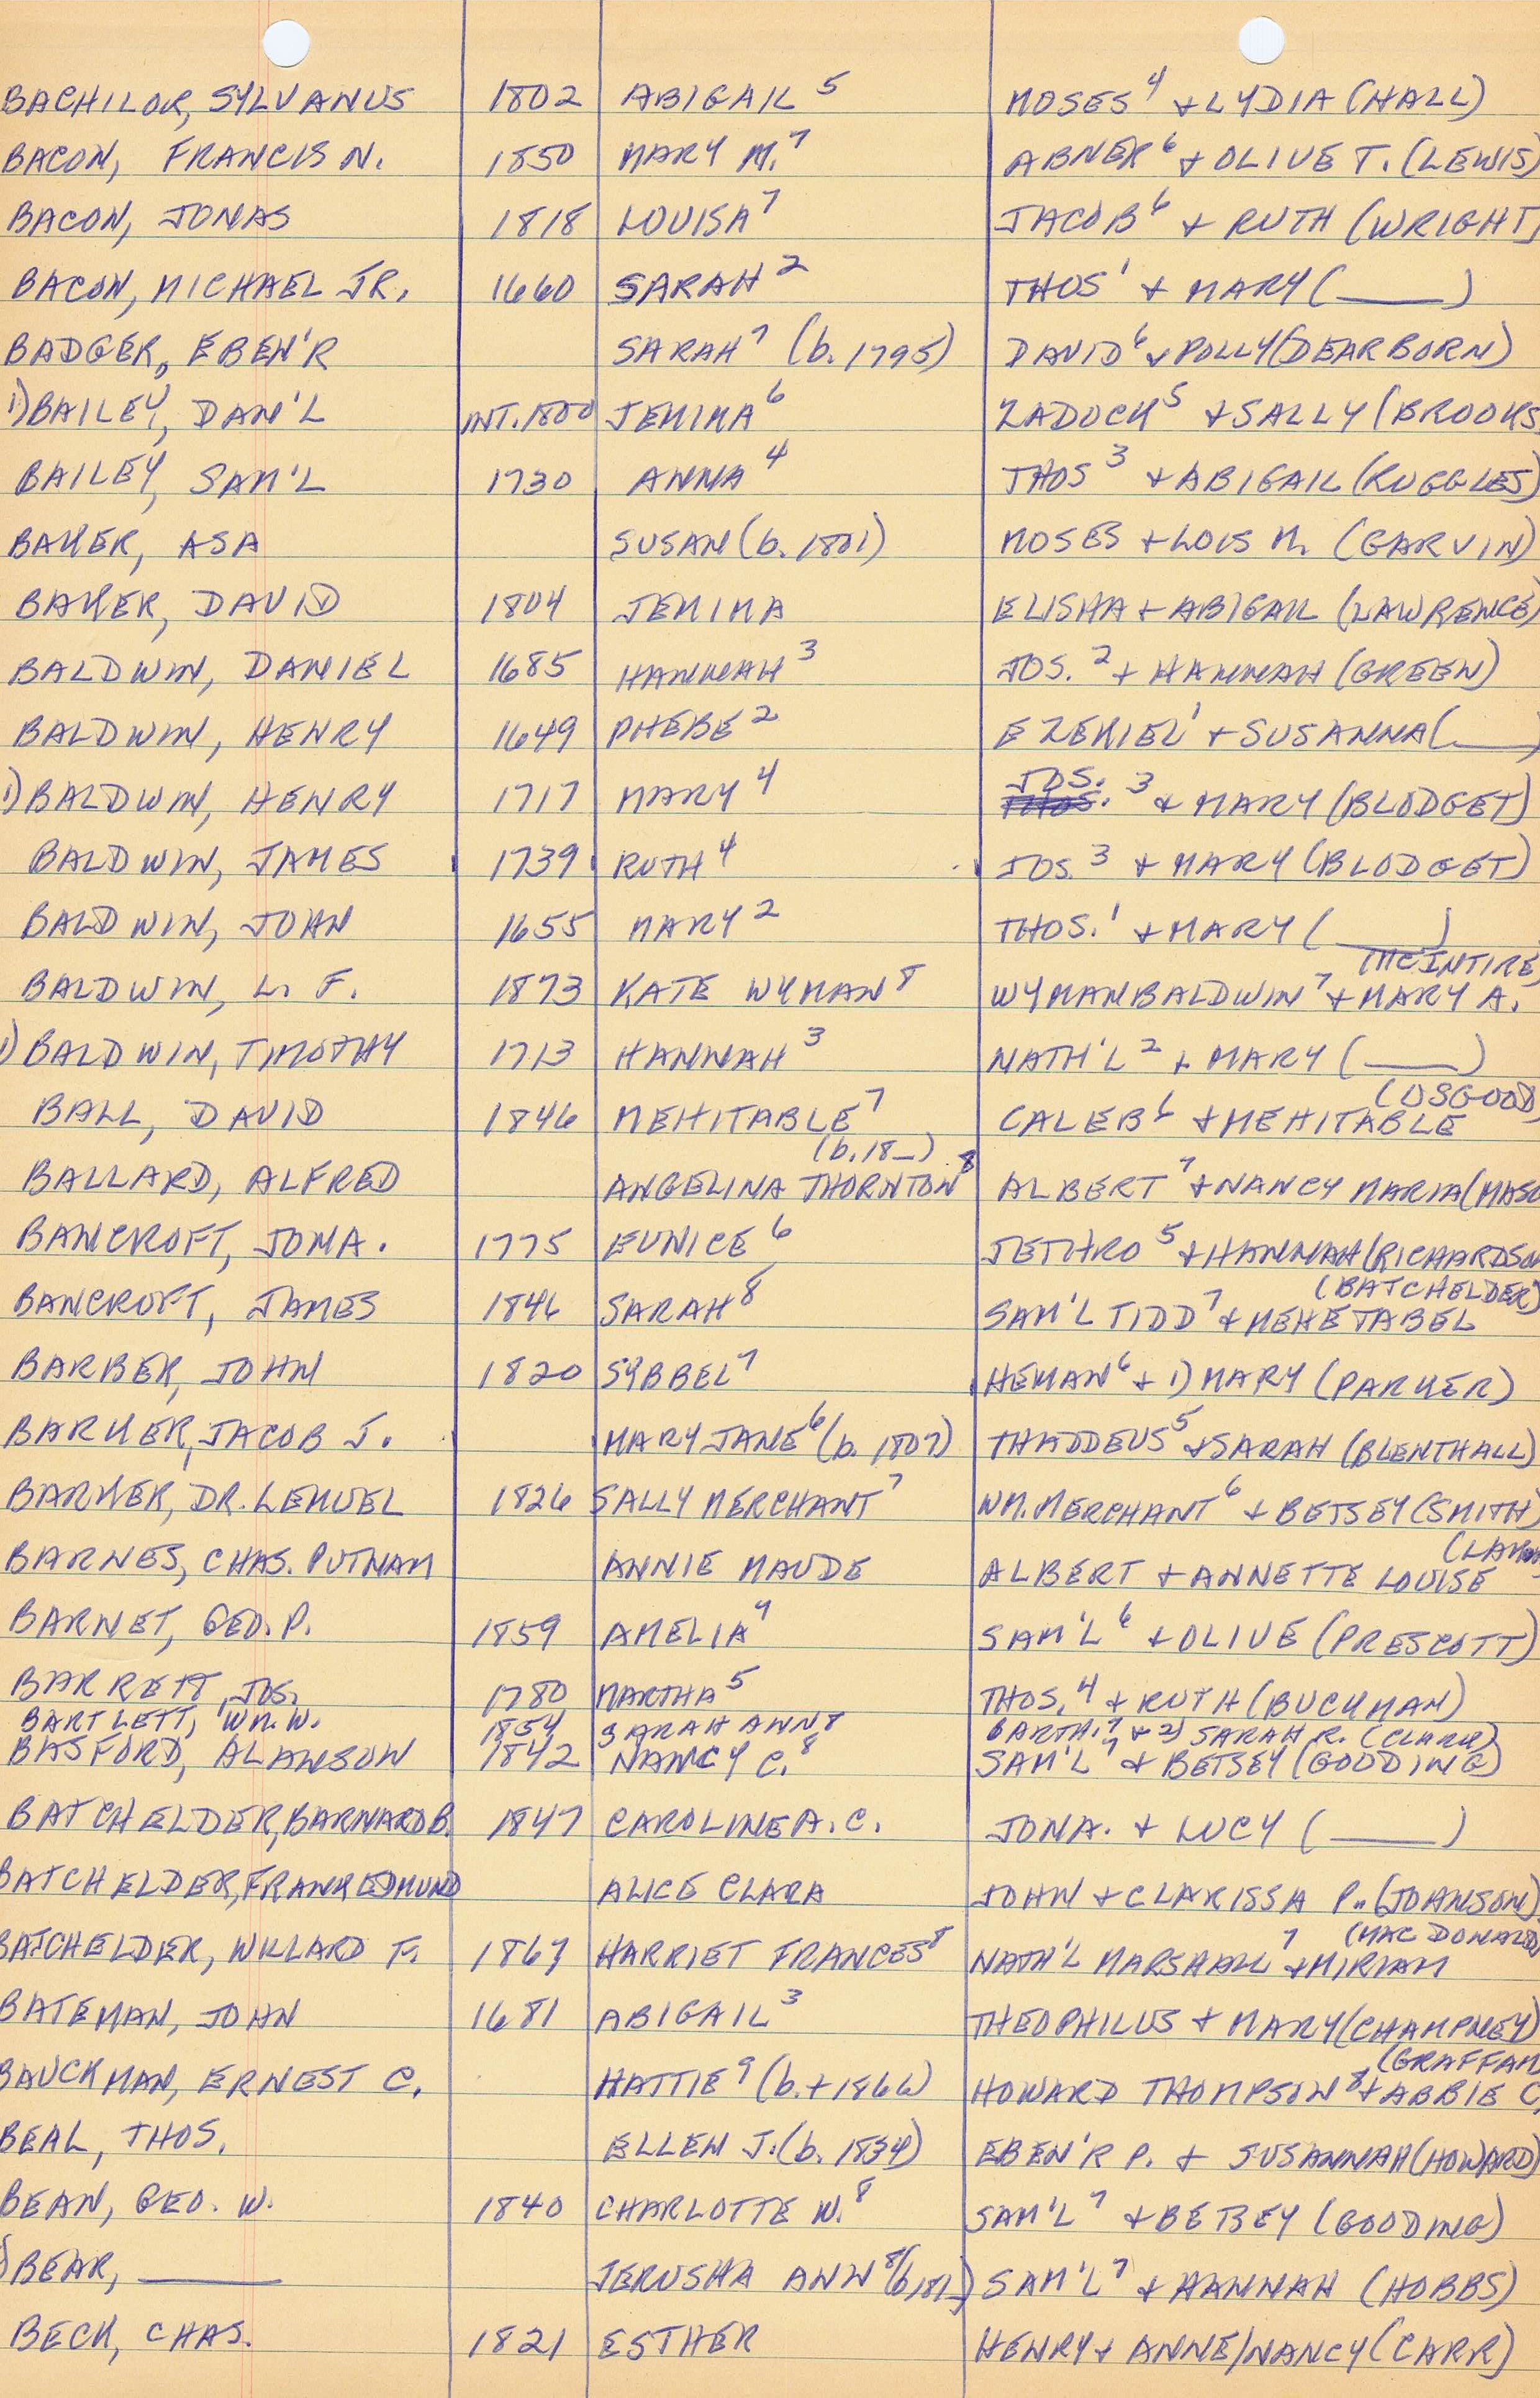 BACHILOR, SYLVANUS 1802 ABIGAIL⁵ MOSES⁴ + LYDIA (HALL)
BACON, FRANCIS N. 1850 MARY M.⁷ ABNER⁶ + OLIVE T. (LEWIS)
BACON, JONAS 1818 LOUISA⁷ JACOB⁶ + RUTH (WRIGHT)
BACON, MICHAEL JR. 1660 SARAH² THOS¹ + MARY (____)
BADGER, EBEN'R SARAH⁷ (b. 1795) DAVID⁶ + POLLY (DEARBORN)
1) BAILEY, DAN'L INT. 1800 JEMIMA⁶ ZADOCK⁵ + SALLY (BROOKS
BAILEY, SAM'L 1730 ANNA⁴ THOS³ + ABIGAIL (RUGGLES)
BAKER, ASA SUSAN (b. 1801) MOSES + LOIS M. (GARVIN)
BAKER, DAVID 1804 JEMIMA ELISHA + ABIGAIL (LAWRENCE)
BALDWIN, DANIEL 1685 HANNAH³ JOS.² + HANNAH (GREEN)
BALDWIN, HENRY 1649 PHEBE² EZEKIEL¹ + SUSANNA (____)
JOS.
1) BALDWIN, HENRY 1717 MARY⁴ THOS.³ + MARY (BLODGET)
BALDWIN, JAMES 1739 RUTH⁴ JOS.³ + MARY (BLODGET)
BALDWIN, JOHN 1655 MARY² THOS.¹ + MARY (____)
(MCINTIRE)
BALDWIN, L. F. 1873 KATE WYMAN⁸ WYMAN BALDWIN⁷ + MARY A.
1) BALDWIN, TIMOTHY 1713 HANNAH³ NATH'L² + MARY (____)
(OSGOOD)
BALL, DAVID 1846 MEHITABLE⁷ CALEB⁶ + MEHITABLE
(b. 18_)
BALLARD, ALFRED ANGELINA THORNTON⁸ ALBERT⁷ + NANCY MARIA (MASO
BANCROFT, JONA. 1775 EUNICE⁶ JETHRO⁵ + HANNAH (RICHARDSON
(BATCHELDER)
BANCROFT, JAMES 1846 SARAH⁸ SAM'L TIDD⁷ + MEHETABEL
BARBER, JOHN 1820 SYBBEL⁷ HEMAN⁶ + 1) MARY (PARKER)
BARKER, JACOB J. MARY JANE⁶ (b. 1807) THADDEUS⁵ + SARAH (BLENTHALL)
BARKER, DR. LEMUEL 1826 SALLY MERCHANT⁷ WM. MERCHANT⁶ + BETSEY (SMITH)
BARNES, CHAS. PUTNAM ANNIE MAUDE ALBERT + ANNETTE LOUISE
BARNET, GEO. P. 1859 AMELIA⁷ SAM'L⁶ + OLIVE (PRESCOTT)
BARRETT, JOS. 1780 MARTHA⁵ THOS.⁴ + RUTH (BUCKMAN)
BARTLETT, WM. W. 1854 SARAH ANN⁸ BARTH.⁷ + 2) SARAH R. (CLARK)
BASFORD, ALANSON 1842 NANCY C.⁸ SAM'L⁷ + BETSEY (GOODING)
BATCHELDER, BARNARD B. 1847 CAROLINE A. C. JONA. + LUCY (____)
BATCHELDER, FRANK EDMUND ALICE CLARA JOHN + CLARISSA P. (JOHNSON)
(MAC DONALD)
BATCHELDER, WILLARD F. 1867 HARRIET FRANCES⁸ NATH'L MARSHALL⁷ + MIRIAM
BATEMAN, JOHN 1681 ABIGAIL³ THEOPHILUS + MARY (CHAMPNEY)
(GRAFFAM
BAUCKMAN, ERNEST C. HATTIE⁹ (b. + 1866) HOWARD THOMPSON⁸ + ABBIE C.
BEAL, THOS. ELLEN J. (b. 1834) EBEN'R P. + SUSANNAH (HOWARD)
BEAN, GEO. W. 1840 CHARLOTTE W.⁸ SAM'L⁷ + BETSEY (GOODING)
1) BEAR, ____ JERUSHA ANN⁸ (b. 181_) SAM'L⁷ + HANNAH (HOBBS)
BECK, CHAS. 1821 ESTHER HENRY + ANNE/NANCY (CARR)